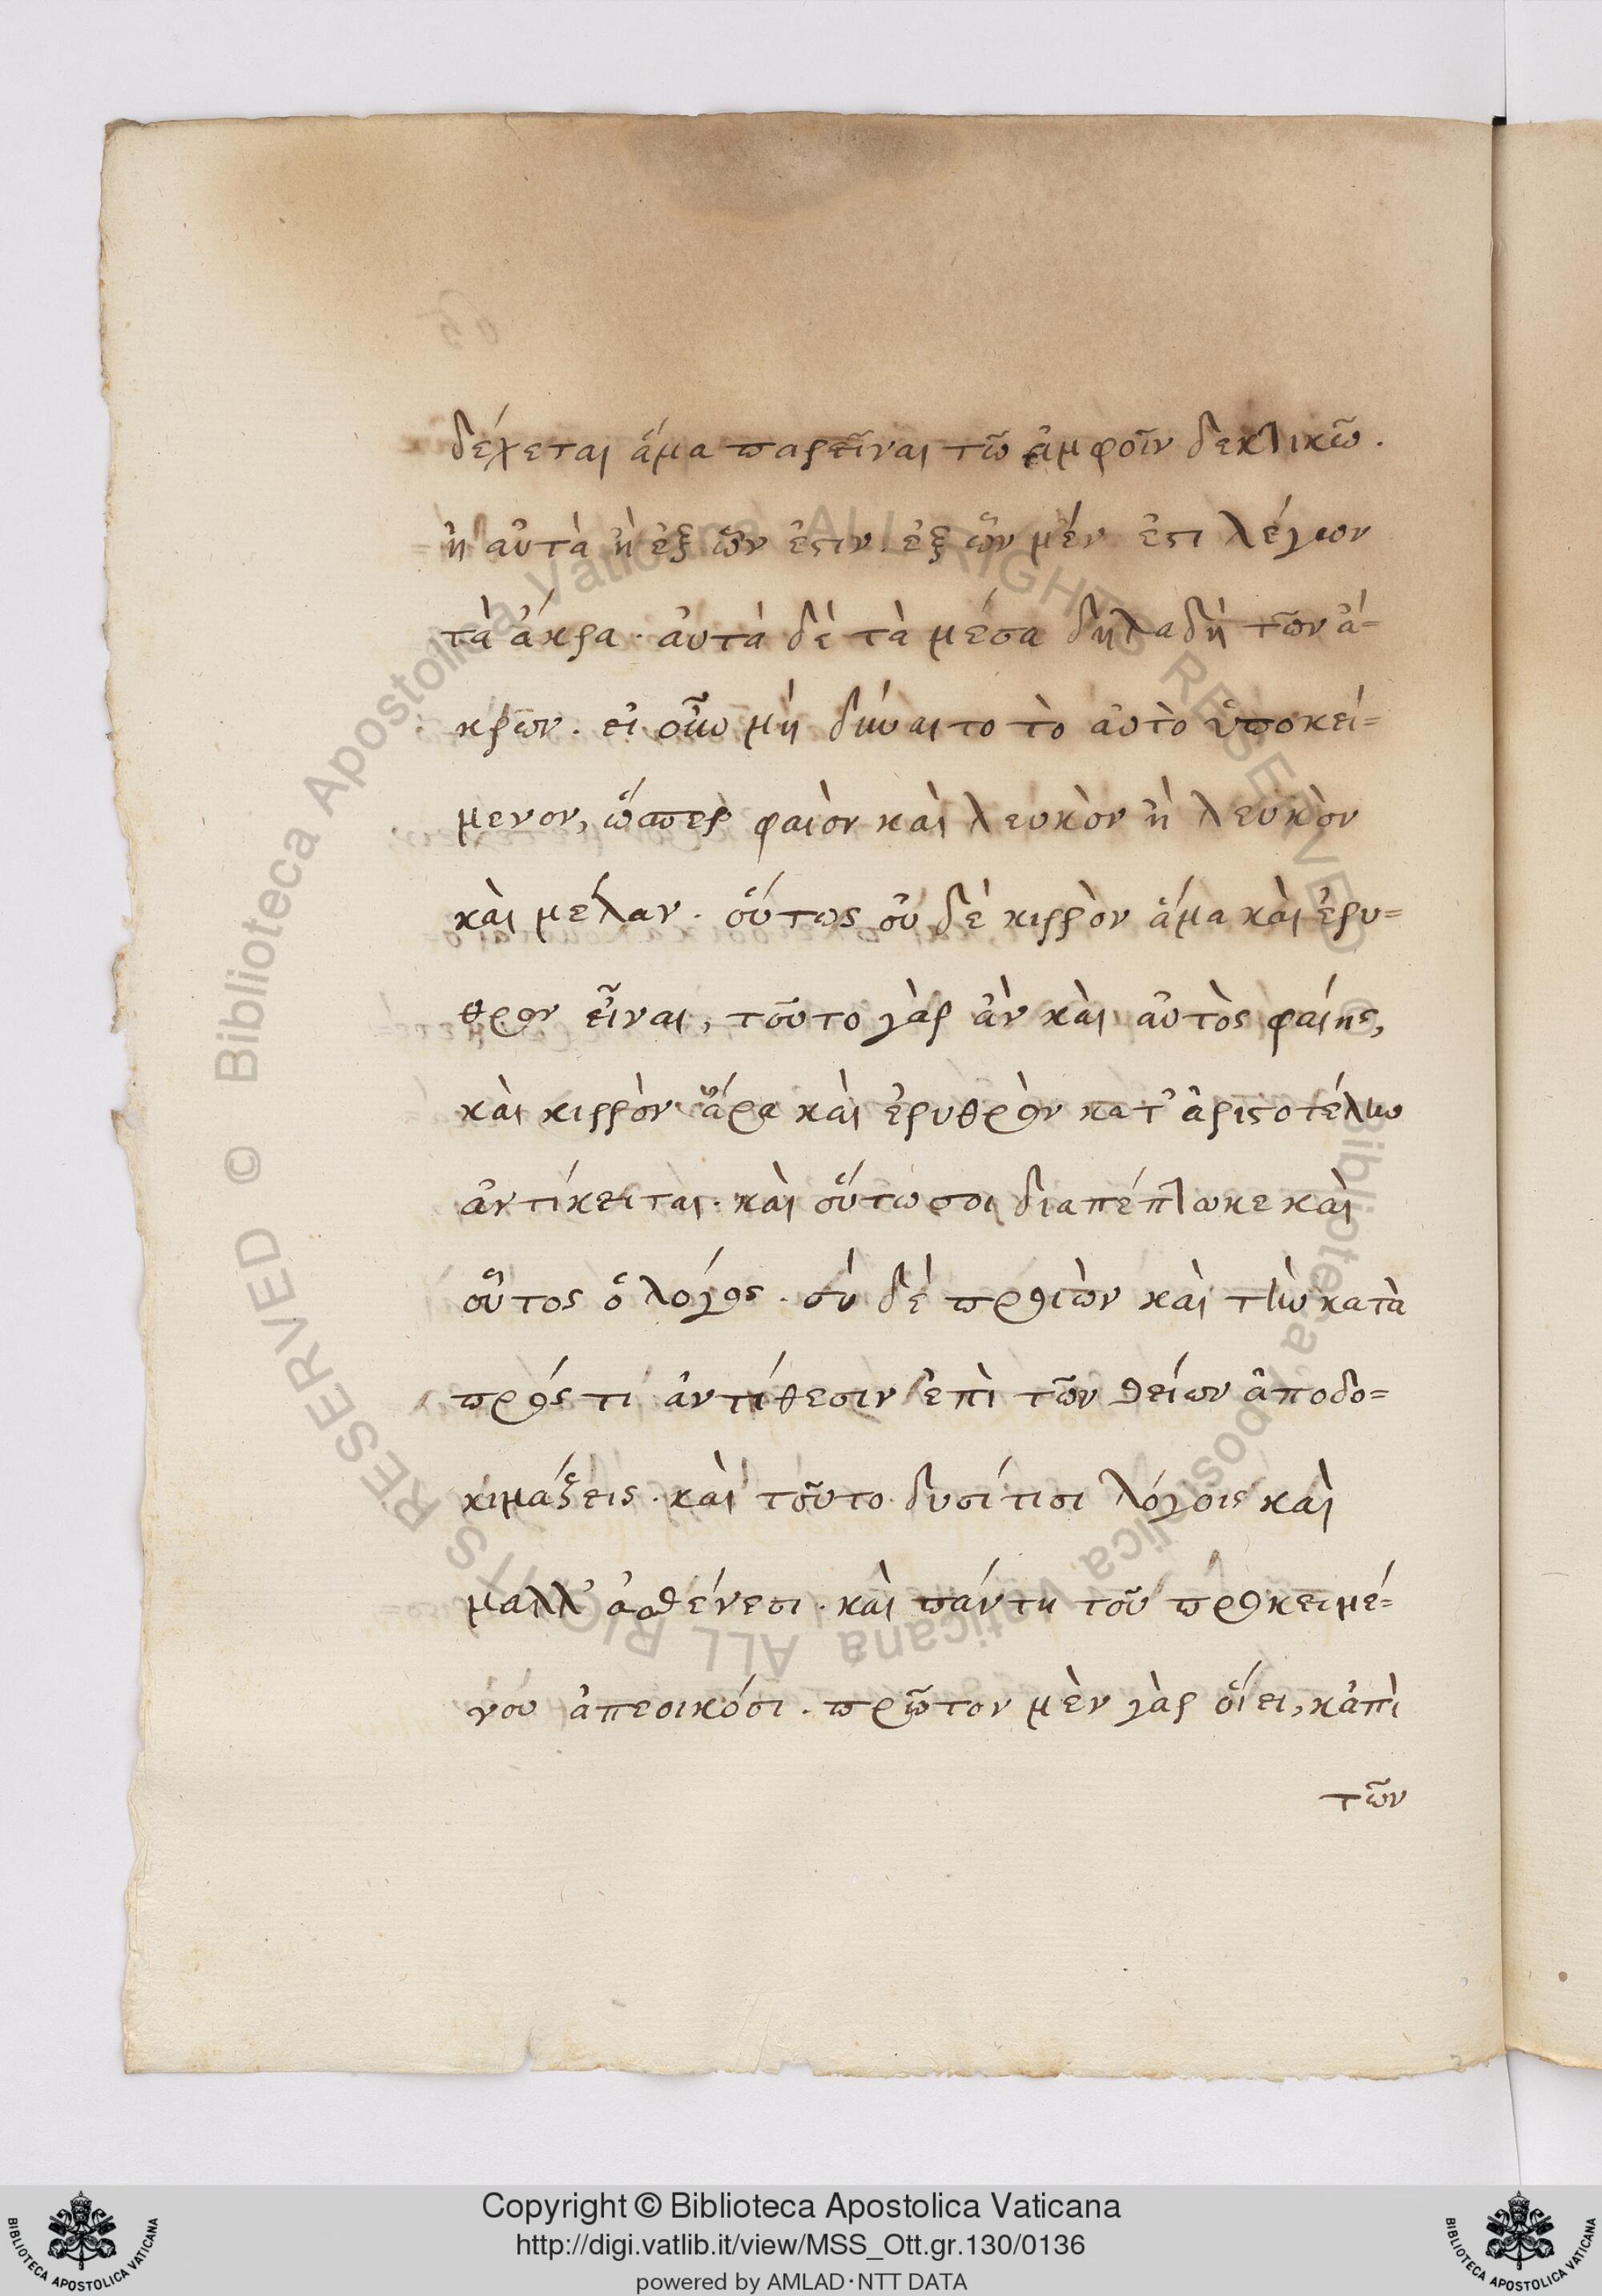 δέχεται ἅμα παρεῖναι τῶ ἀμφοῖν δεκτικῶ.
ἢ αὐτὰ ἢ ἐξ ὧν ἐστιν. ἐξ ὧν μέν ἐστι λέγων
τὰ ἄκρα. αὐτά δὲ τὰ μέσα δηλαδὴ τῶν ἄ=
κρων. εἰ οὖν μὴ δύναιτο τὸ αὐτὸ ὑποκεί=
μενον, ὥσπερ φαιὸν καὶ λευκὸν ἢ λευκὸν
καὶ μέλαν. οὕτως οὐδὲ κιρρὸν ἅμα καὶ ἐρυ=
θρον εἶναι, τοῦτο γὰρ ἂν καὶ αὐτὸς φαίης,
καὶ κιρρὸν ἄρα καὶ ἐρυθρὸν κατ' ἀριστοτέλην
ἀντίκειται. καὶ οὕτω σοι διαπέπτωκε καὶ
οὗτος ὁ λόγος. σὺ δὲ προϊὼν καὶ τὴν κατὰ
πρός τι ἀντίθεσιν ἐπὶ τῶν θείων ἀποδο=
κιμάξεις. καὶ τοῦτο δυσί τισι λόγοις καὶ
μαλλ' ἀσθένεσι. καὶ πάντη τοῦ προκειμέ=
νου ἀπεοικόσι. πρῶτον μὲν γὰρ οἴει, κἀπὶ
τῶν
Copyright © Biblioteca Apostolica Vaticana
http://digi.vatlib.it/view/MSS_Ott.gr.130/0136
powered by AMLAD·NTT DATA
BIBLIOTECA APOSTOLICA VATICANA
BIBLIOTECA APOSTOLICA VATICANA
© Biblioteca Apostolica Vaticana ALL RIGHTS RESERVED © Biblioteca Apostolica Vaticana ALL RIGHTS RESERVED